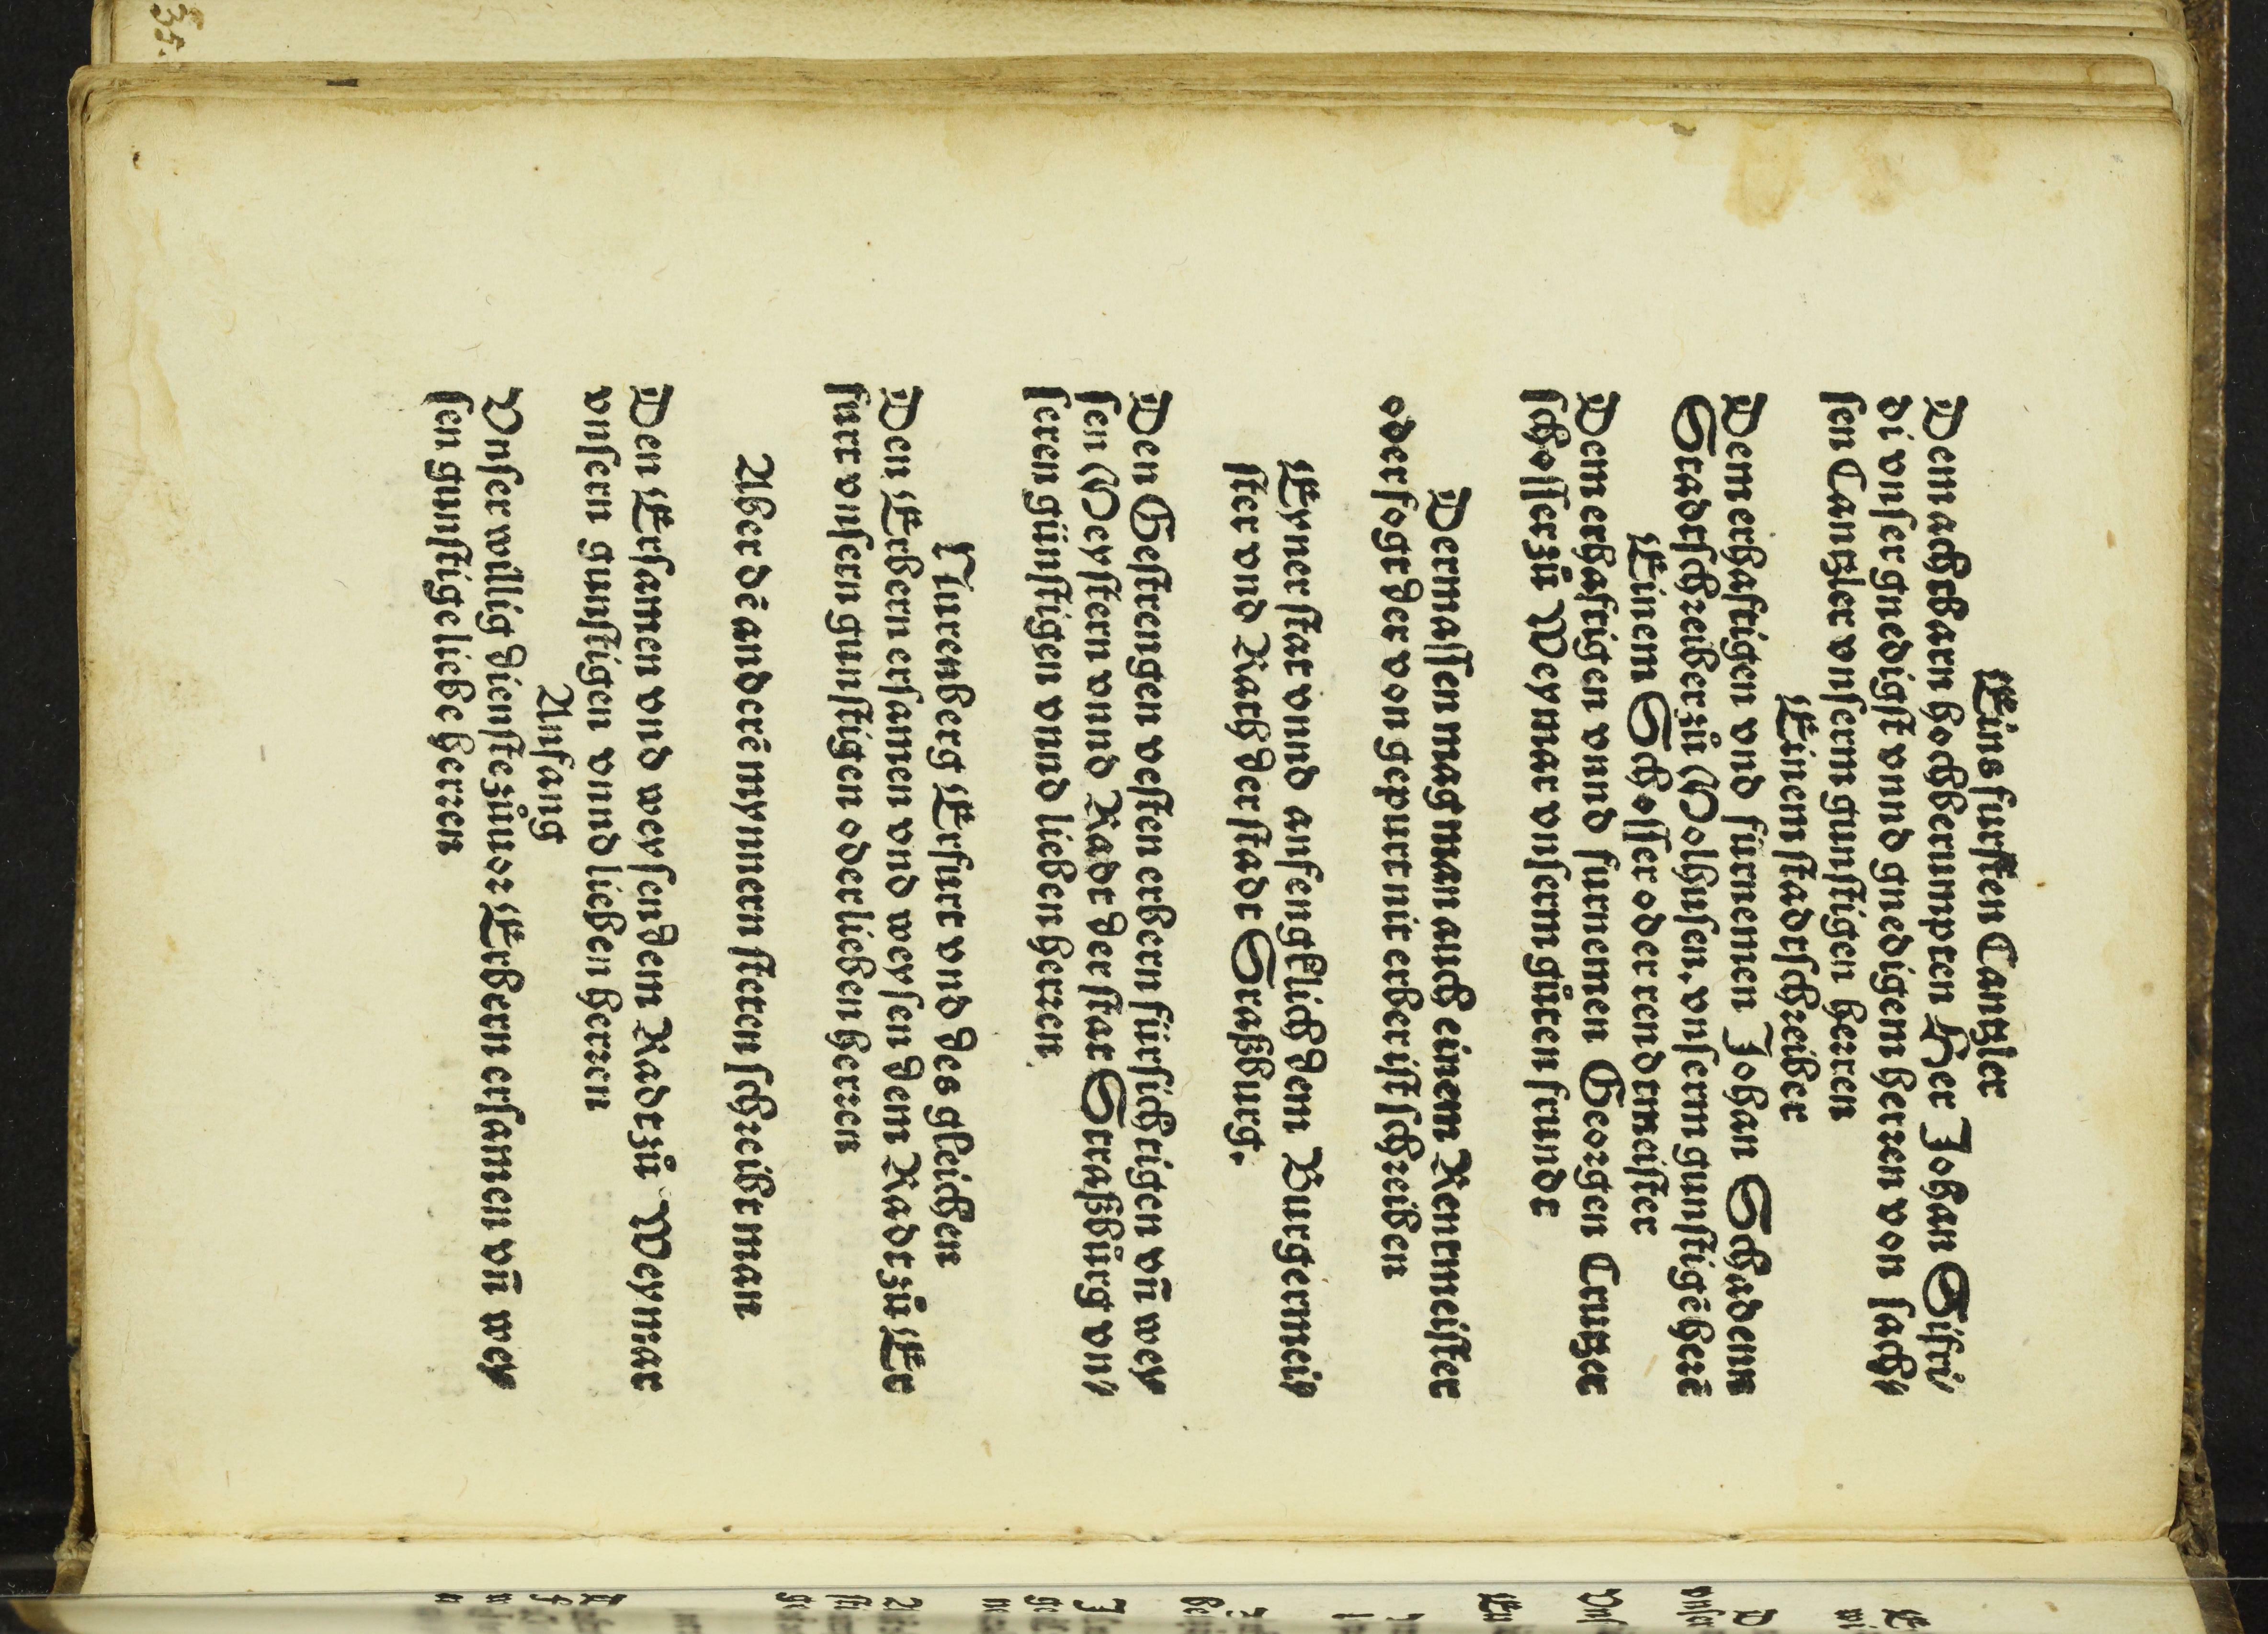 Eins fursten Cantzler
Dem achtbarn hochberumpten Her Johan Stifri/
di vnser gnedigst vnnd gnedigem herren von sach/
sen Cantzler vnserm gunstigen herren
Einem stadtschreiber
Dem erhaftigen vnd fürnemen Johan Schademn
Stadtschreiber zů Molhusen, vnserm gunstigē herrē
Einem Schosser oder rendtmeister
Dem erhaftigen vnnd furnemen Georgen Trutzer
schosser zů Weymar vnserm gůten frundt
Dermassen mag man auch einem Rentmeister
oder fogt der von gepurt nit erber ist schreiben
Eyner stat vnnd anfengklich dem Burgermei/
ster vnd Rath der stadt Straßburg.
Den Gestrengen vesten erbern fürsichtigen vñ wey/
sen Meystern vnnd Radt der stat Straßbürg vn/
seren günstigen vnnd lieben herren.
Nurenberg Erfurt vnd des gleichen
Den Erbern ersamen vnd weysen dem Radt zů Er
furt vnsern gunstigen oder lieben herren
Aber dē anderē mynnern steten schreibt man
Den Ersamen vnd weysen dem Radt zů Weymar
vnsern gunstigen vnnd lieben herren
Anfang
Vnser willig dienste zůuor Erbern ersamen vñ wey/
sen gunstige liebe herren